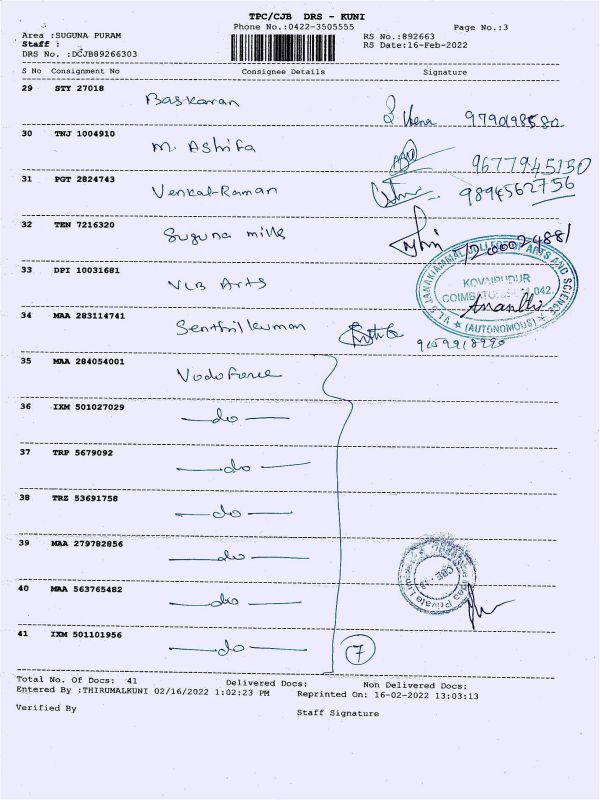 TPC/CJB DRS - KUNI
Phone No.:0422-3505555
Page No.:3
Area :SUGUNA PURAM
RS No.:892663
Staff :
RS Date:16-Feb-2022
DRS No. :DCJB89266303
S No Consignment No Consignee Details Signature
29 STY 27018
Baskaran
30 TNJ 1004910
M. Ashifa
9677945150
31 PGT 2824743
Venkat Raman
9894562756
32 TEN 7216320
Suguna mills
33 DPI 10031681
VLB Arts
KOVAIPUDUR
COIMBATORE 042.
(AUTONOMOUS)
34 MAA 283114741
Senthilkumar
35 MAA 284054001
Vodoforce
36 IXM 501027029
do
37 TRP 5679092
do
38 TRZ 53691758
do
39 MAA 279782856
do
40 MAA 563765482
do
41 IXM 501101956
do
7
Total No. Of Docs: 41 Delivered Docs: Non Delivered Docs:
Entered By :THIRUMALKUNI 02/16/2022 1:02:23 PM Reprinted On: 16-02-2022 13:03:13
Verified By
Staff Signature